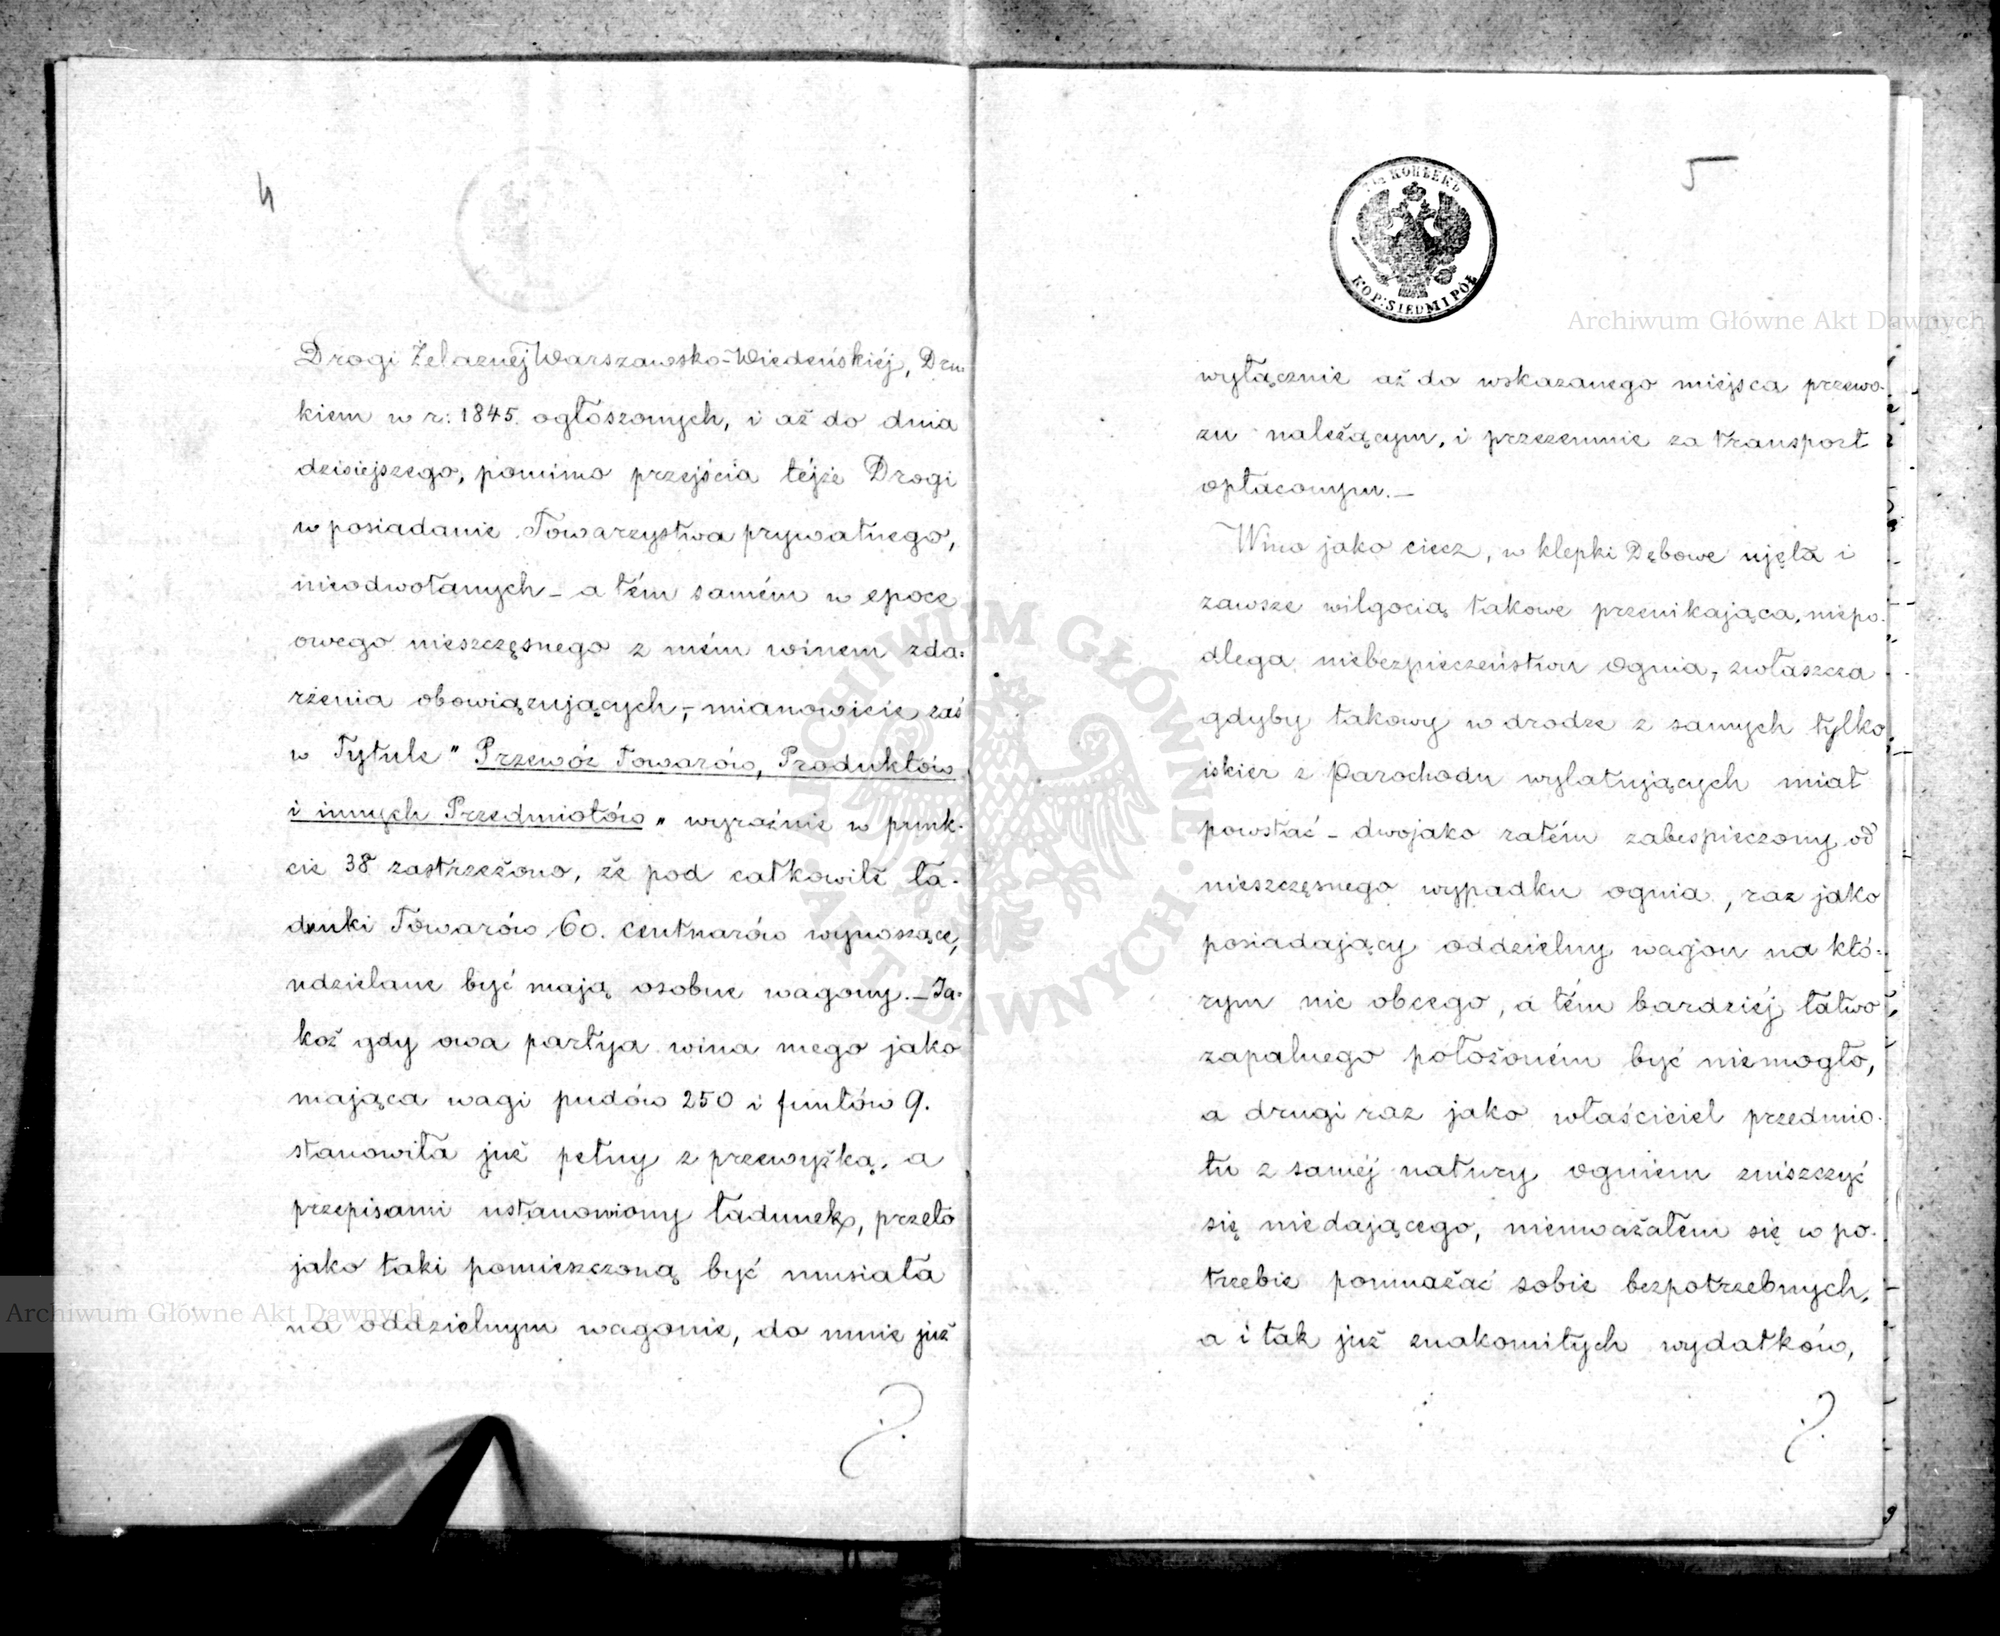 4
Drogi Żelaznéj Warszawsko-Wiedeńskiéj, Dru-
kiem w r: 1845. ogłoszonych, i aż do dnia
dzisiejszego, pomimo przejścia téjże Drogi
w posiadanie Towarzystwa prywatnego,
nieodwołanych – a tém samém w epoce
owego nieszczęsnego z mém winem zda-
rzenia obowiązujących, – mianowicie zaś
w Tytule "Przewóz Towarów, Produktów
i innych Przedmiotów" wyraźnie w punk-
cie 38 zastrzeżono, że pod całkowite ła-
dunki Towarów 60. centnarów wynoszące,
udzielane być mają osobne wagony. – Ja-
koż gdy owa partya wina mego jako
mająca wagi pudów 250 i funtów 9.
stanowiła już pełny z przewyżką, a
przepisami ustanowiony ładunek, przeto
jako taki pomieszczoną być musiała
na oddzielnym wagonie, do mnie już
5
KOP: SIEDM I PÓŁ
wyłącznie aż do wskazanego miejsca przewo-
zu należącym, i przezemnie za transport
opłaconym. –
Wino jako ciecz, w klepki Dębowe ujęta i
zawsze wilgocią takowe przenikająca, niepo-
dlega niebezpieczeństwu Ognia, zwłaszcza
gdyby takowy w drodze z samych tylko
iskier z Parochodu wylatujących miał
powstać – dwojako zatém zabespieczony od
nieszczęsnego wypadku ognia, raz jako
posiadający oddzielny wagon na któ-
rym nic obcego, a tém bardziéj łatwo
zapalnego położoném być niemogło,
a drugi raz jako właściciel przedmio-
tu z saméj natury ogniem zniszczyć
się niedającego, nieuważałem się w po-
trzebie pomnażać sobie bezpotrzebnych,
a i tak już znakomitych wydatków,
Archiwum Główne Akt Dawnych
Archiwum Główne Akt Dawnych
ARCHIWUM GŁÓWNE AKT DAWNYCH